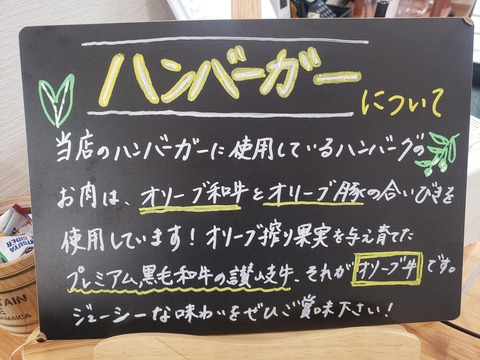 ハンバーガー
について
当店のハンバーガーに使用しているハンバグの
お肉は、オリーブ和牛とオリーブ豚の合いびきを
使用しています！オリーブ搾り果実を与え育てた
プレミアム黒毛和牛の讃岐牛、それがオリーブ牛です。
ジューシーな味わいをぜひご賞味下さい！
CIDER
TAIN
JAMAICA